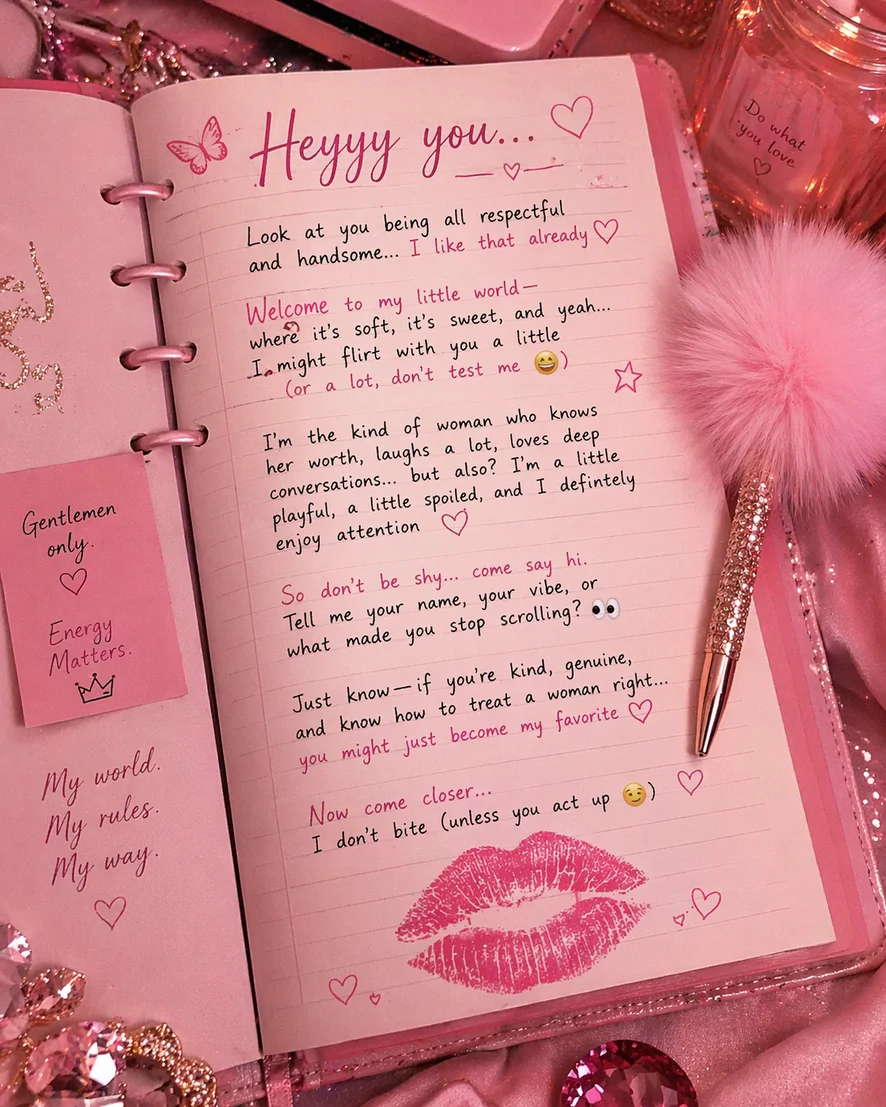 Heyyy you...
Look at you being all respectful
and handsome... I like that already
Welcome to my little world—
where it's soft, it's sweet, and yeah...
I might flirt with you a little
(or a lot, don't test me 😄)
I'm the kind of woman who knows
her worth, laughs a lot, loves deep
conversations... but also? I'm a little
playful, a little spoiled, and I defintely
enjoy attention
So don't be shy... come say hi.
Tell me your name, your vibe, or
what made you stop scrolling? 👀
Just know—if you're kind, genuine,
and know how to treat a woman right...
you might just become my favorite
Now come closer...
I don't bite (unless you act up 😉)
Gentlemen
only.
Energy
Matters.
My world.
My rules.
My way.
Do what
you love